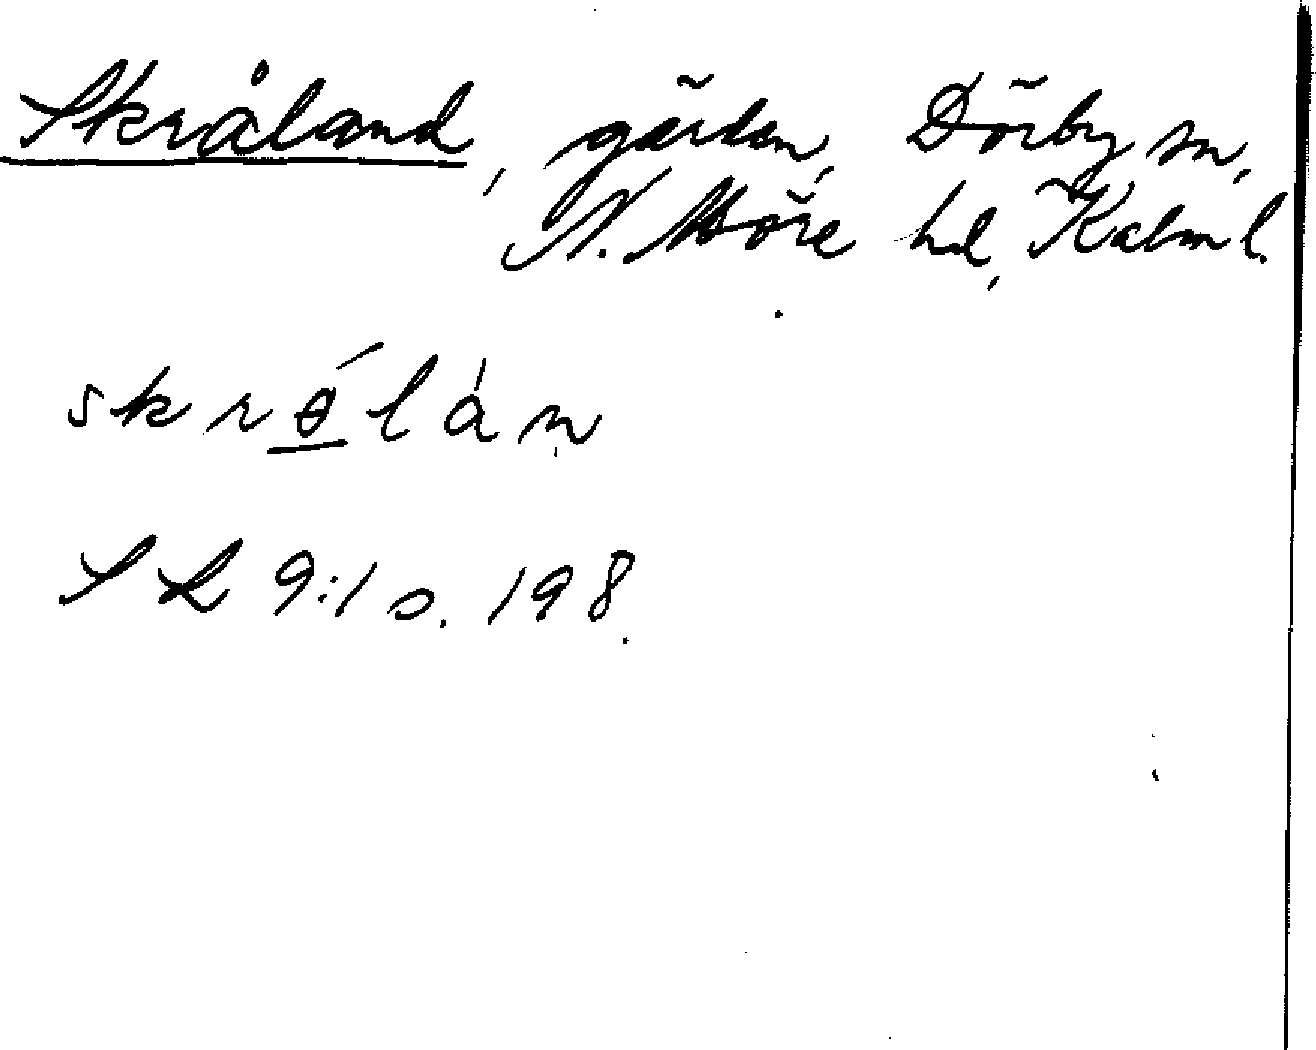 Skråland, gården, Dörby sn,
N. Möre hd, Kalm l.
skrө́lán
SL 9:1 s. 198.